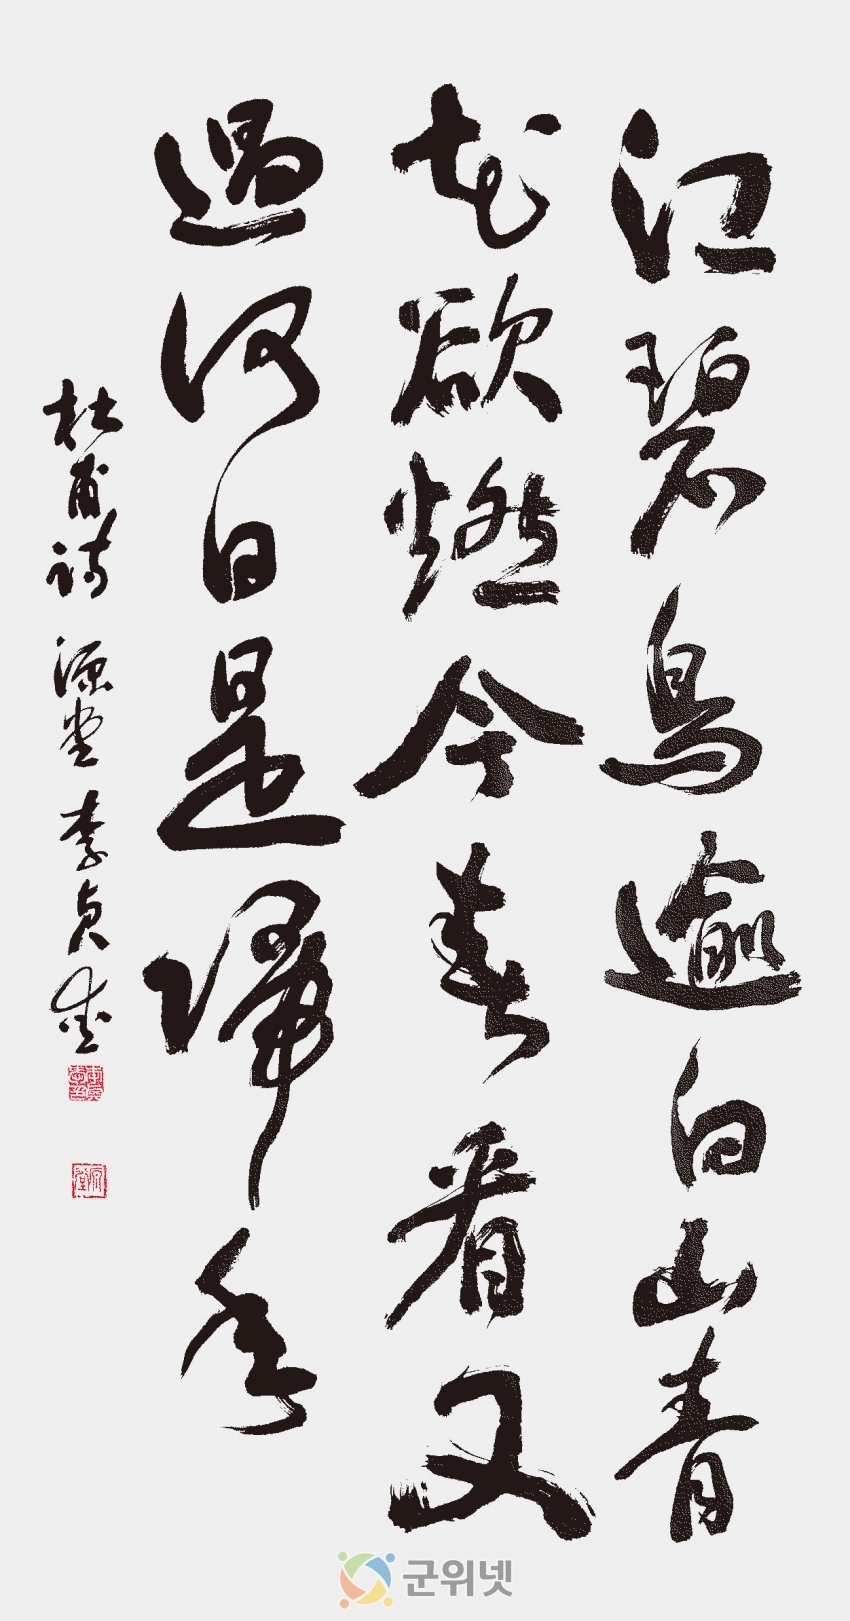 江碧鳥逾白山青
花欲燃今春看又
過何日是歸年
杜甫詩 源堂 李貞
군위넷